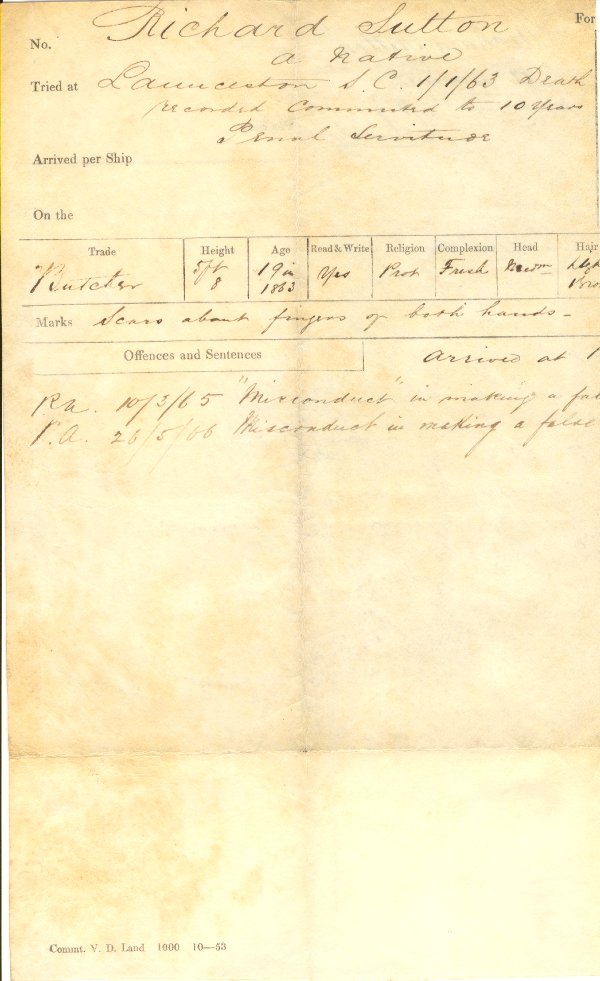 For
No. Richard Sutton
a Native
Tried at Launceston S.C. 1/1/63 Death
recorded Commuted to 10 Years
Penal Servitude
Arrived per Ship
On the
Trade Height Age Read & Write Religion Complexion Head Hair
Butcher 5 ft 8 19 in 1863 Yes Prot Fresh Medm
Marks Scars about fingers of both hands -
Offences and Sentences arrived at
P.A. 10/3/65 "Misconduct" in making a fal
P.A. 26/5/66 Misconduct in making a false
Commt. V. D. Land 1000 10—53